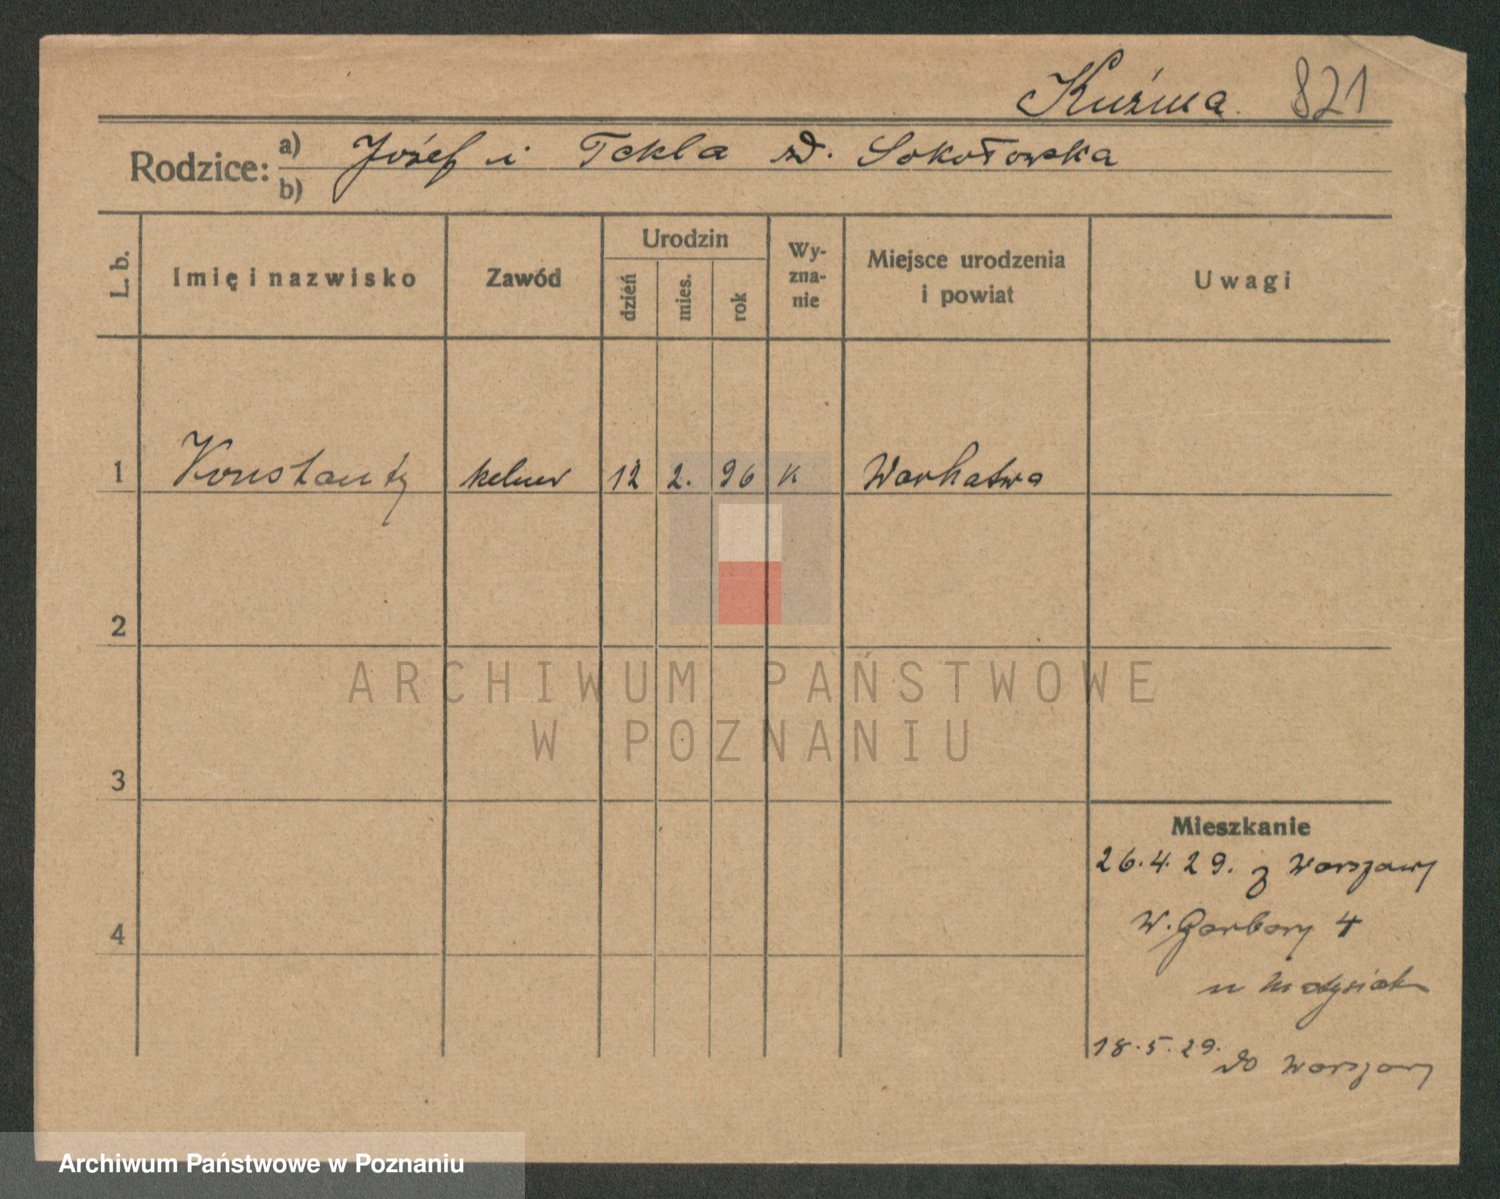 Kuźma. 821
Rodzice: a) Józef i Tekla zd. Sokołowska
b)
L. b.
Imię i nazwisko
Zawód
Urodzin
dzień
mies.
rok
Wy-
zna-
nie
Miejsce urodzenia
i powiat
Uwagi
1 Konstanty kelner 12 2. 96 k
2
3
4
Mieszkanie
26.4.29. z Warszawy
W. Garbary 4
u Matysiak
18.5.29. do Warszawy
ARCHIWUM PAŃSTWOWE
W POZNANIU
Archiwum Państwowe w Poznaniu